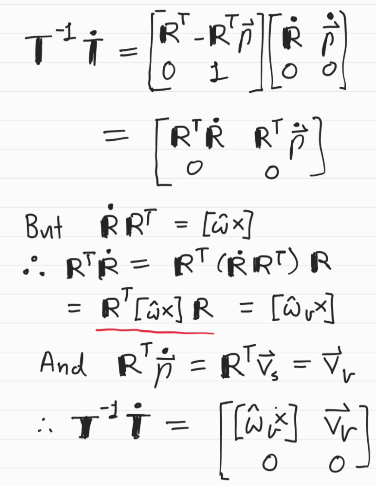 𝕋⁻¹ 𝕋̇ = [ℝᵀ -ℝᵀp⃗; 0 1] [ℝ̇ p⃗̇; 0 0]
= [ℝᵀℝ̇ ℝᵀp⃗̇; 0 0]
But ℝ̇ ℝᵀ = [ω̂×]
∴ ℝᵀℝ̇ = ℝᵀ (ℝ̇ ℝᵀ) ℝ
= ℝᵀ[ω̂×] ℝ = [ω̂ᵣ×]
And ℝᵀp⃗̇ = ℝᵀv⃗ₛ = v⃗ᵣ
∴ 𝕋⁻¹ 𝕋̇ = [[ω̂ᵣ×] v⃗ᵣ; 0 0]